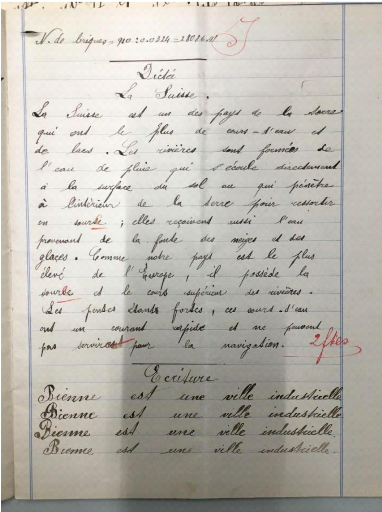 N. de briques = 910 : 0.0324 = 28086.41
5
Dictée
La Suisse.
La Suisse est un des pays de la terre
qui ont le plus de cours-d'eau et
de lacs. Les rivières sont formées de
l'eau de pluie qui s'écoule directement
à la surface du sol ou qui pénètre
à l'intérieur de la terre pour ressortir
en sourbe ; elles reçoivent aussi l'eau
provenant de la fonte des neiges et des
glaces. Comme notre pays est le plus
élevé de l'Europe, il possède la
sourbe et le cours supérieur des rivières.
Les pentes étants fortes, ces cours-d'eau
ont un courant rapide et ne peuvent
pas servirent pour la navigation. 2 ftes
Ecriture
Bienne est une ville industrielle
Bienne est une ville industrielle
Bienne est une ville industrielle.
Bienne est une ville industrielle.